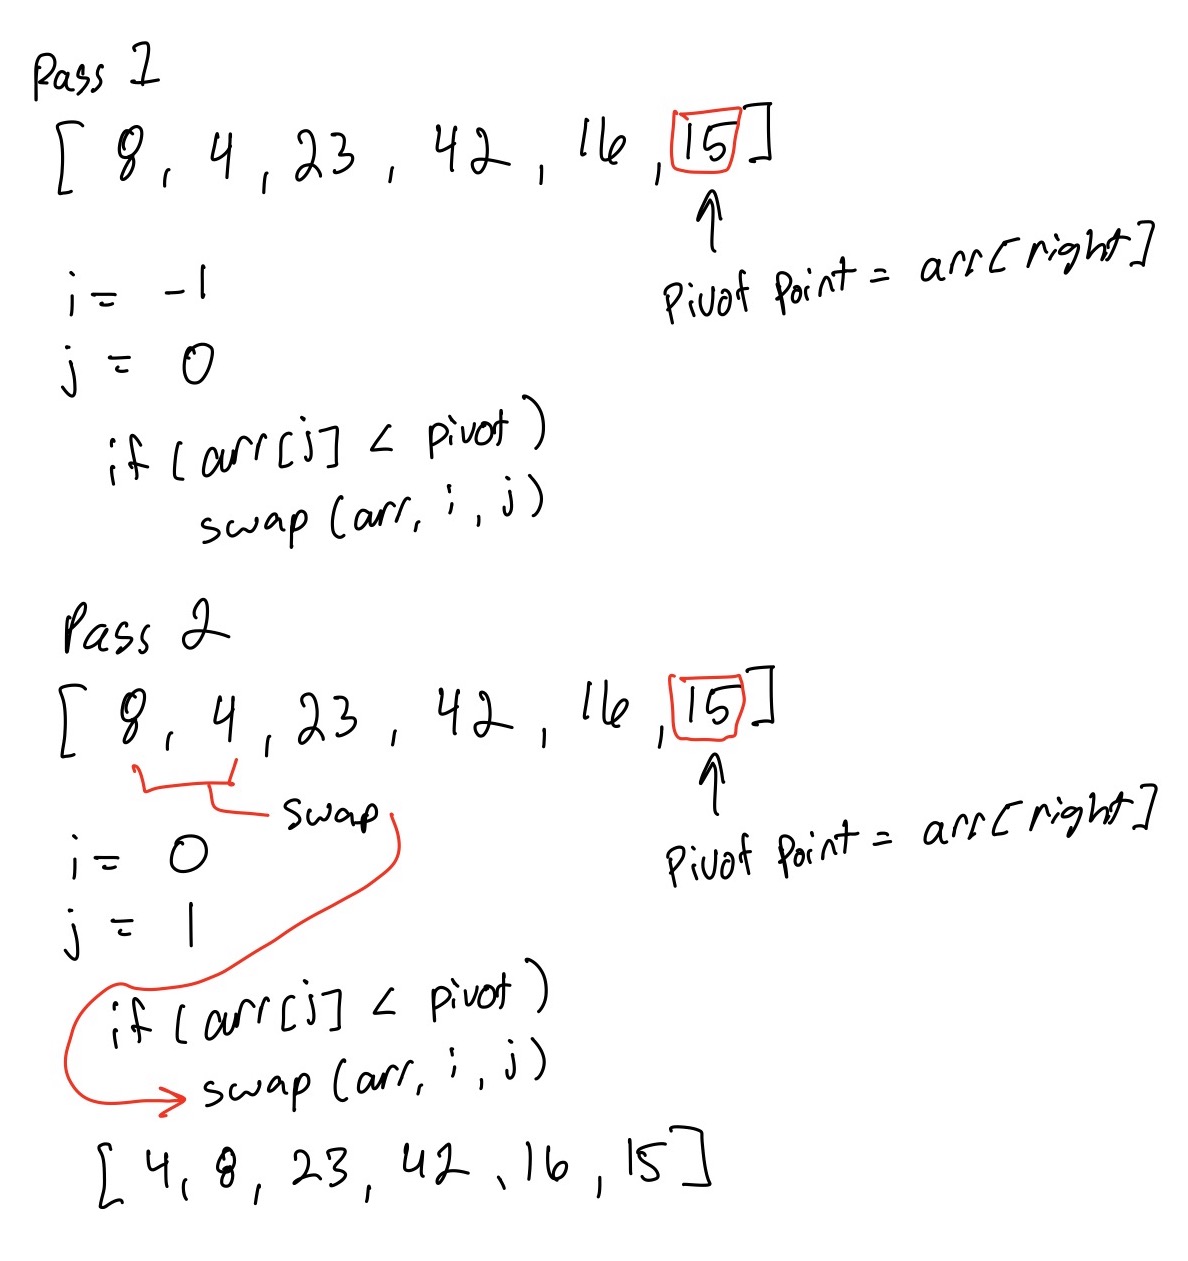 Pass 1
[ 8, 4, 23, 42, 16, 15 ]
Pivot Point = arr[right]
i = -1
j = 0
if (arr[j] < pivot)
swap (arr, i, j)
Pass 2
[ 8, 4, 23, 42, 16, 15 ]
swap
Pivot Point = arr[right]
i = 0
j = 1
if (arr[j] < pivot)
swap (arr, i, j)
[ 4, 8, 23, 42, 16, 15 ]